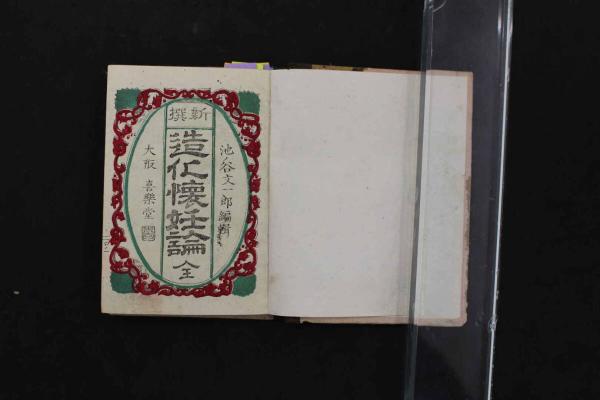 新撰
池谷文一郎編輯
造化懐妊論 全
大阪 喜樂堂